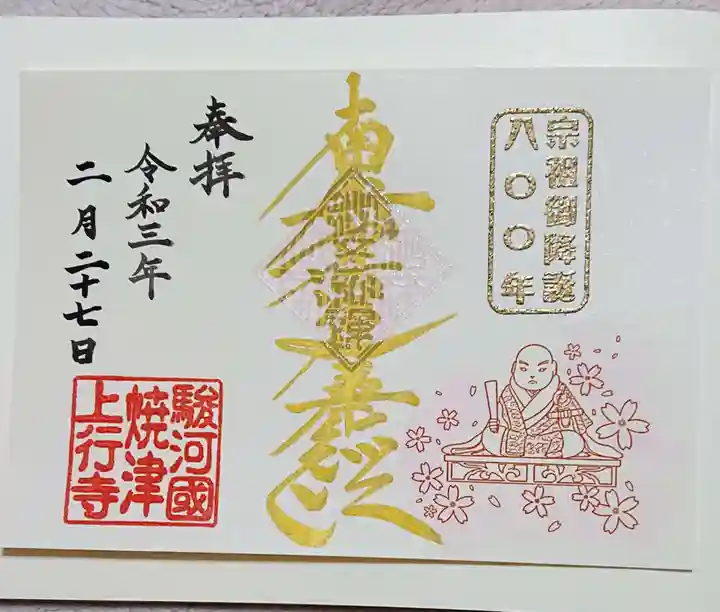 宗祖御降誕
八〇〇年
南無妙法蓮華経
奉拝
令和三年
二月二十七日
駿河國
焼津
上行寺